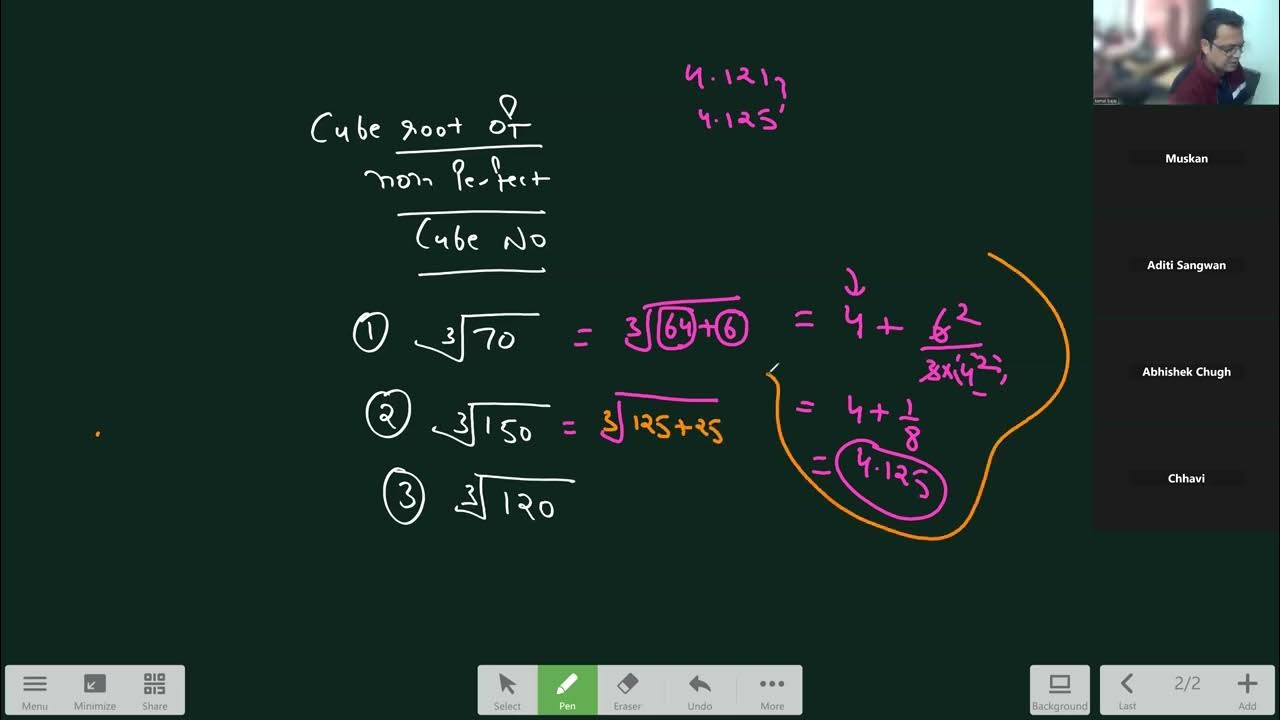 4.121,
4.125
Cube root of
non Perfect
Cube No
① ∛70 = ∛64+6 = 4 + 6 2 / 3×(4²)
= 4 + 1/8
= 4.125
② ∛150 = ∛125+25
③ ∛120
Muskan
Aditi Sangwan
Abhishek Chugh
Chhavi
Menu
Minimize
Share
Select
Pen
Eraser
Undo
More
Background
Last
2/2
Add